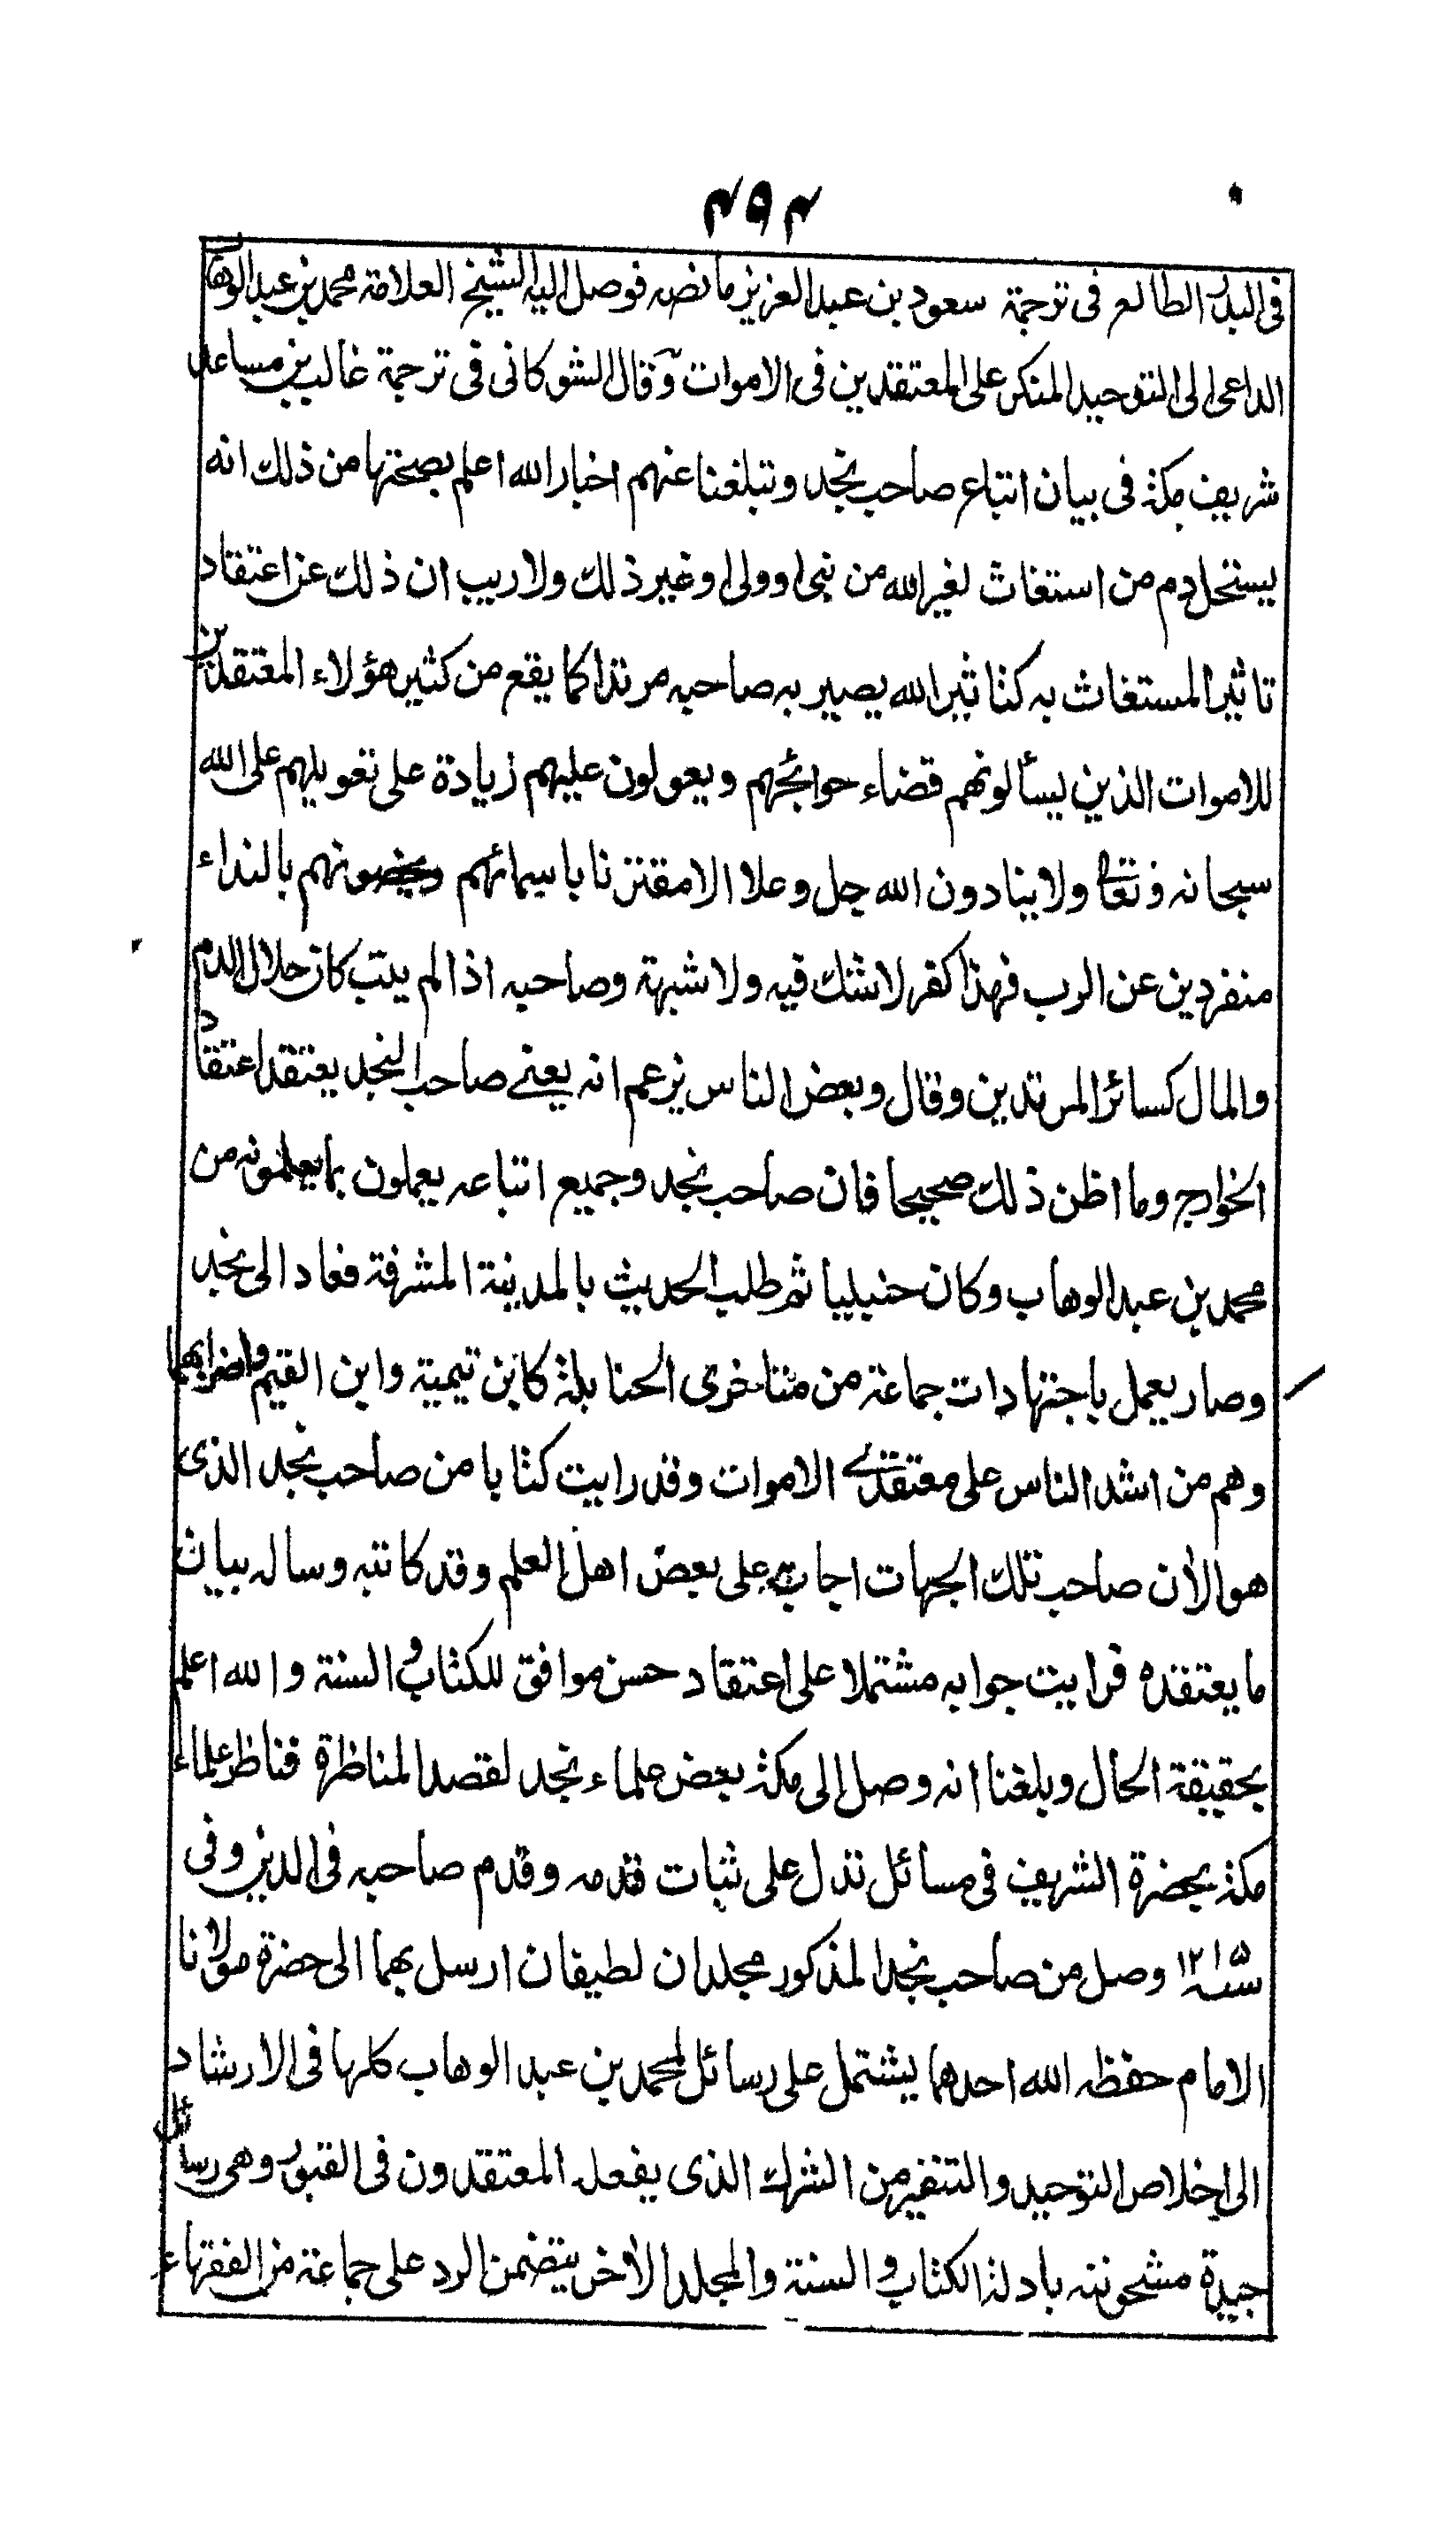 ٤٥٤
فى البدر الطالع فى ترجمة سعود بن عبد العزيز ما نصه فوصل اليه الشيخ العلامة محمد بن عبد الوهاب
الداعى الى التوحيد المنكر على المعتقدين فى الاموات وقال الشوكانى فى ترجمة غالب بن مساعد
شريف مكة فى بيان اتباع صاحب نجد وتبلغنا عنهم اخبار الله اعلم بصحتها من ذلك انه
يستحل دم من استغاث لغير الله من نبى او ولى او غير ذلك ولا ريب ان ذلك عن اعتقاد
تاثير المستغاث به كتاثير الله يصير به صاحبه مرتدا كما يقع من كثير هؤلاء المعتقدين
للاموات الذين يسألونهم قضاء حوائجهم ويعولون عليهم زيادة على تعويلهم على الله
سبحانه وتعالى ولا ينادون الله جل وعلا الا مقترنا باسمائهم ويخصونهم بالنداء
منفردين عن الرب فهذا كفر لا شك فيه ولا شبهة وصاحبه اذا لم يتب كان حلال الدم
والمال كسائر المرتدين وقال وبعض الناس يزعم انه يعنے صاحب النجد يعتقد اعتقاد
الخوارج وما اظن ذلك صحيحا فان صاحب نجد وجميع اتباعه يعملون بما يعلمونه من
محمد بن عبد الوهاب وكان حنبليا ثم طلب الحديث بالمدينة المشرفة فعاد الى نجد
وصار يعمل باجتهادات جماعة من متاخرى الحنابلة كابن تيمية وابن القيم واضرابهما
وهم من اشد الناس على معتقدے الاموات وقد رايت كتابا من صاحب نجد الذى
هو الأن صاحب تلك الجهات اجاب به على بعض اهل العلم وقد كاتبه وساله بيان
ما يعتقده فرايت جوابه مشتملا على اعتقاد حسن موافق للكتاب والسنة والله اعلم
بحقيقة الحال وبلغنا انه وصل الى مكة بعض علماء نجد لقصد المناظرة فناظر علماء
مكة بحضرة الشريف فى مسائل تدل على ثبات قدمه وقدم صاحبه فى الدين وفى
سنة ١٢١٥ وصل من صاحب نجد المذكور مجلدان لطيفان ارسل بهما الى حضرة مولانا
الامام حفظه الله احدهما يشتمل على رسائل لمحمد بن عبد الوهاب كلها فى الارشاد
الى اخلاص التوحيد والتنفير من الشرك الذى يفعله المعتقدون فى القبور وهى رسائل
جيدة مشحونة بادلة الكتاب والسنة والمجلد الأخر يتضمن الرد على جماعة من الفقهاء